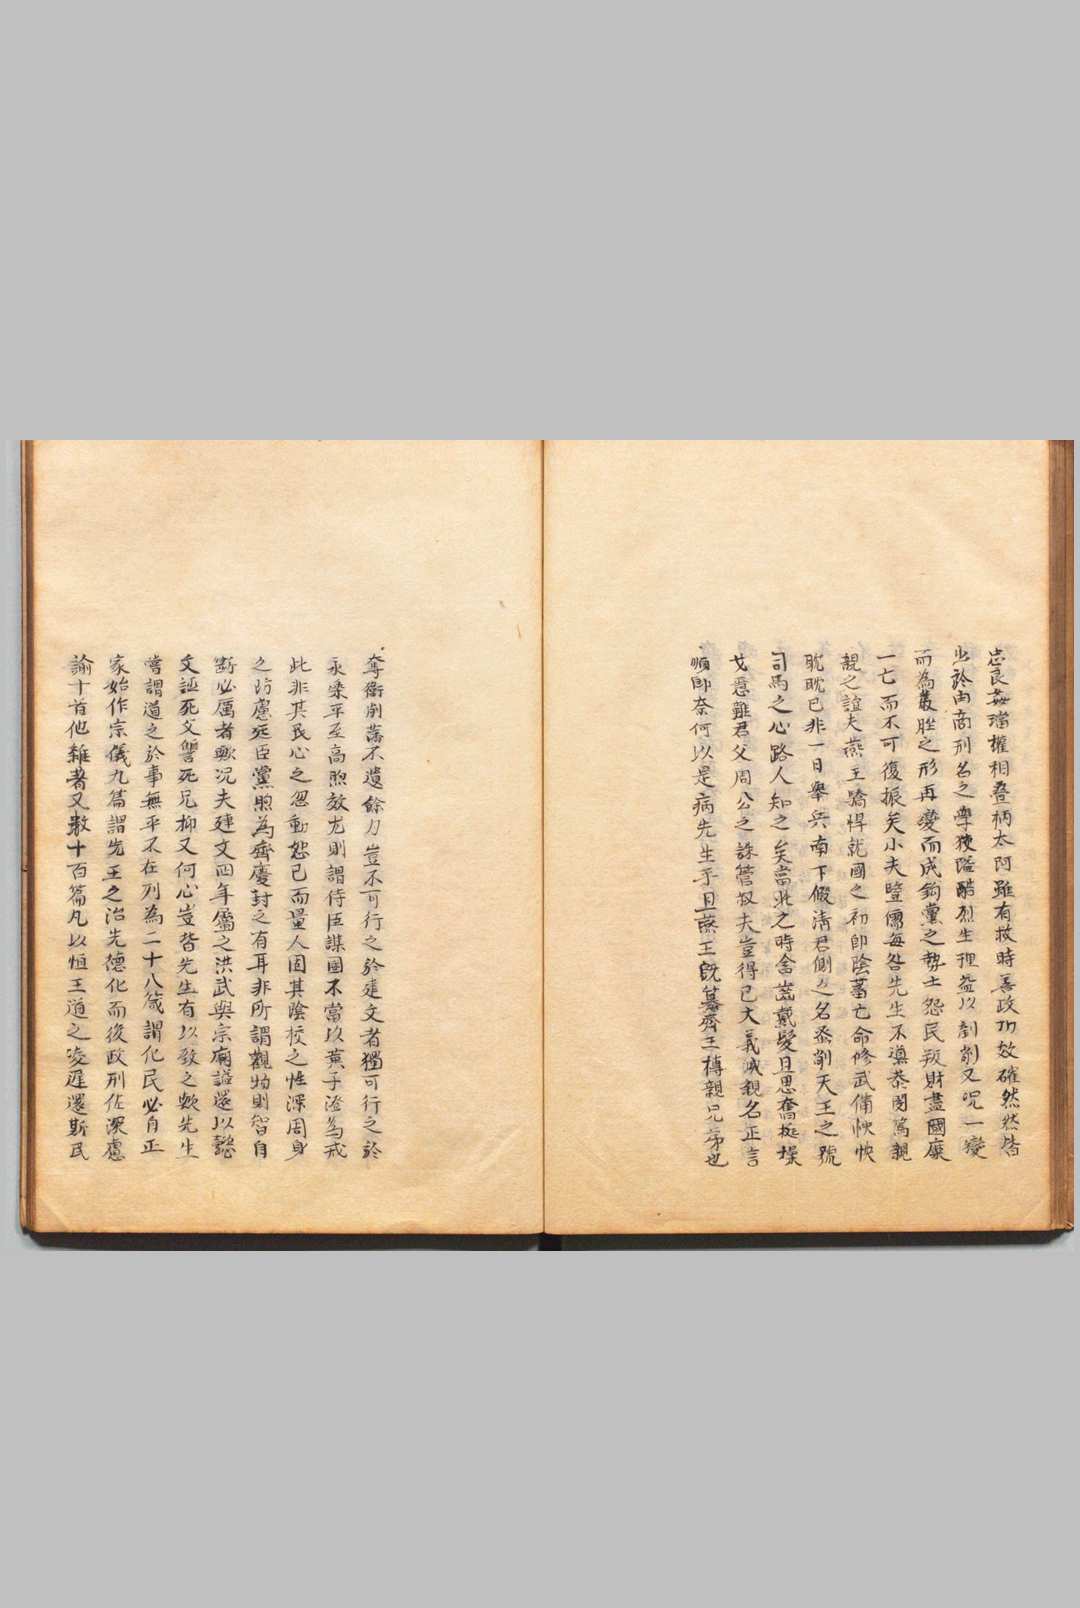 忠良姦璫權相疊柄太阿雖有救時善政功效確然然皆
出於申商刑名之學狹隘酷烈生理益以剷削又咒一變
而為叢脞之形再變而成鉤黨之勢士怨民叛財盡國糜
一亡而不可復振矣小夫豎儒每咎先生不導恭閔篤親
親之誼夫燕王驕悍就國之初即陰蓄亡命修武備怏怏
耽耽已非一日舉兵南下假淸君側之名烝削天王之號
司馬之心路人知之矣當此之時含齒戴髮且思奮挺操
戈意雖君父周公之誅管叔夫豈得已大義滅親名正言
順即奈何以是病先生乎且燕王既篡齊王榑親兄弟也
奪衛削藩不遺餘力豈不可行之於建文者獨可行之於
永樂平至高煦效尤則謂侍臣謀國不當以黃子澄為戒
此非其良心之忽動恕己而量人固其陰狡之性深周身
之防慮死臣黨煦為齊慶封之有耳非所謂觀物則智自
斷必厲者歟況夫建文四年屬之洪武與宗廟謚還以懿
文誣死父讐死兄抑又何心豈皆先生有以致之歟先生
嘗謂道之於事無乎不在列為二十八箴謂化民必自正
家始作宗儀九篇謂先王之治先德化而後政刑作深慮
論十首他雜著又數十百篇凡以恒王道之凌遲還斯民